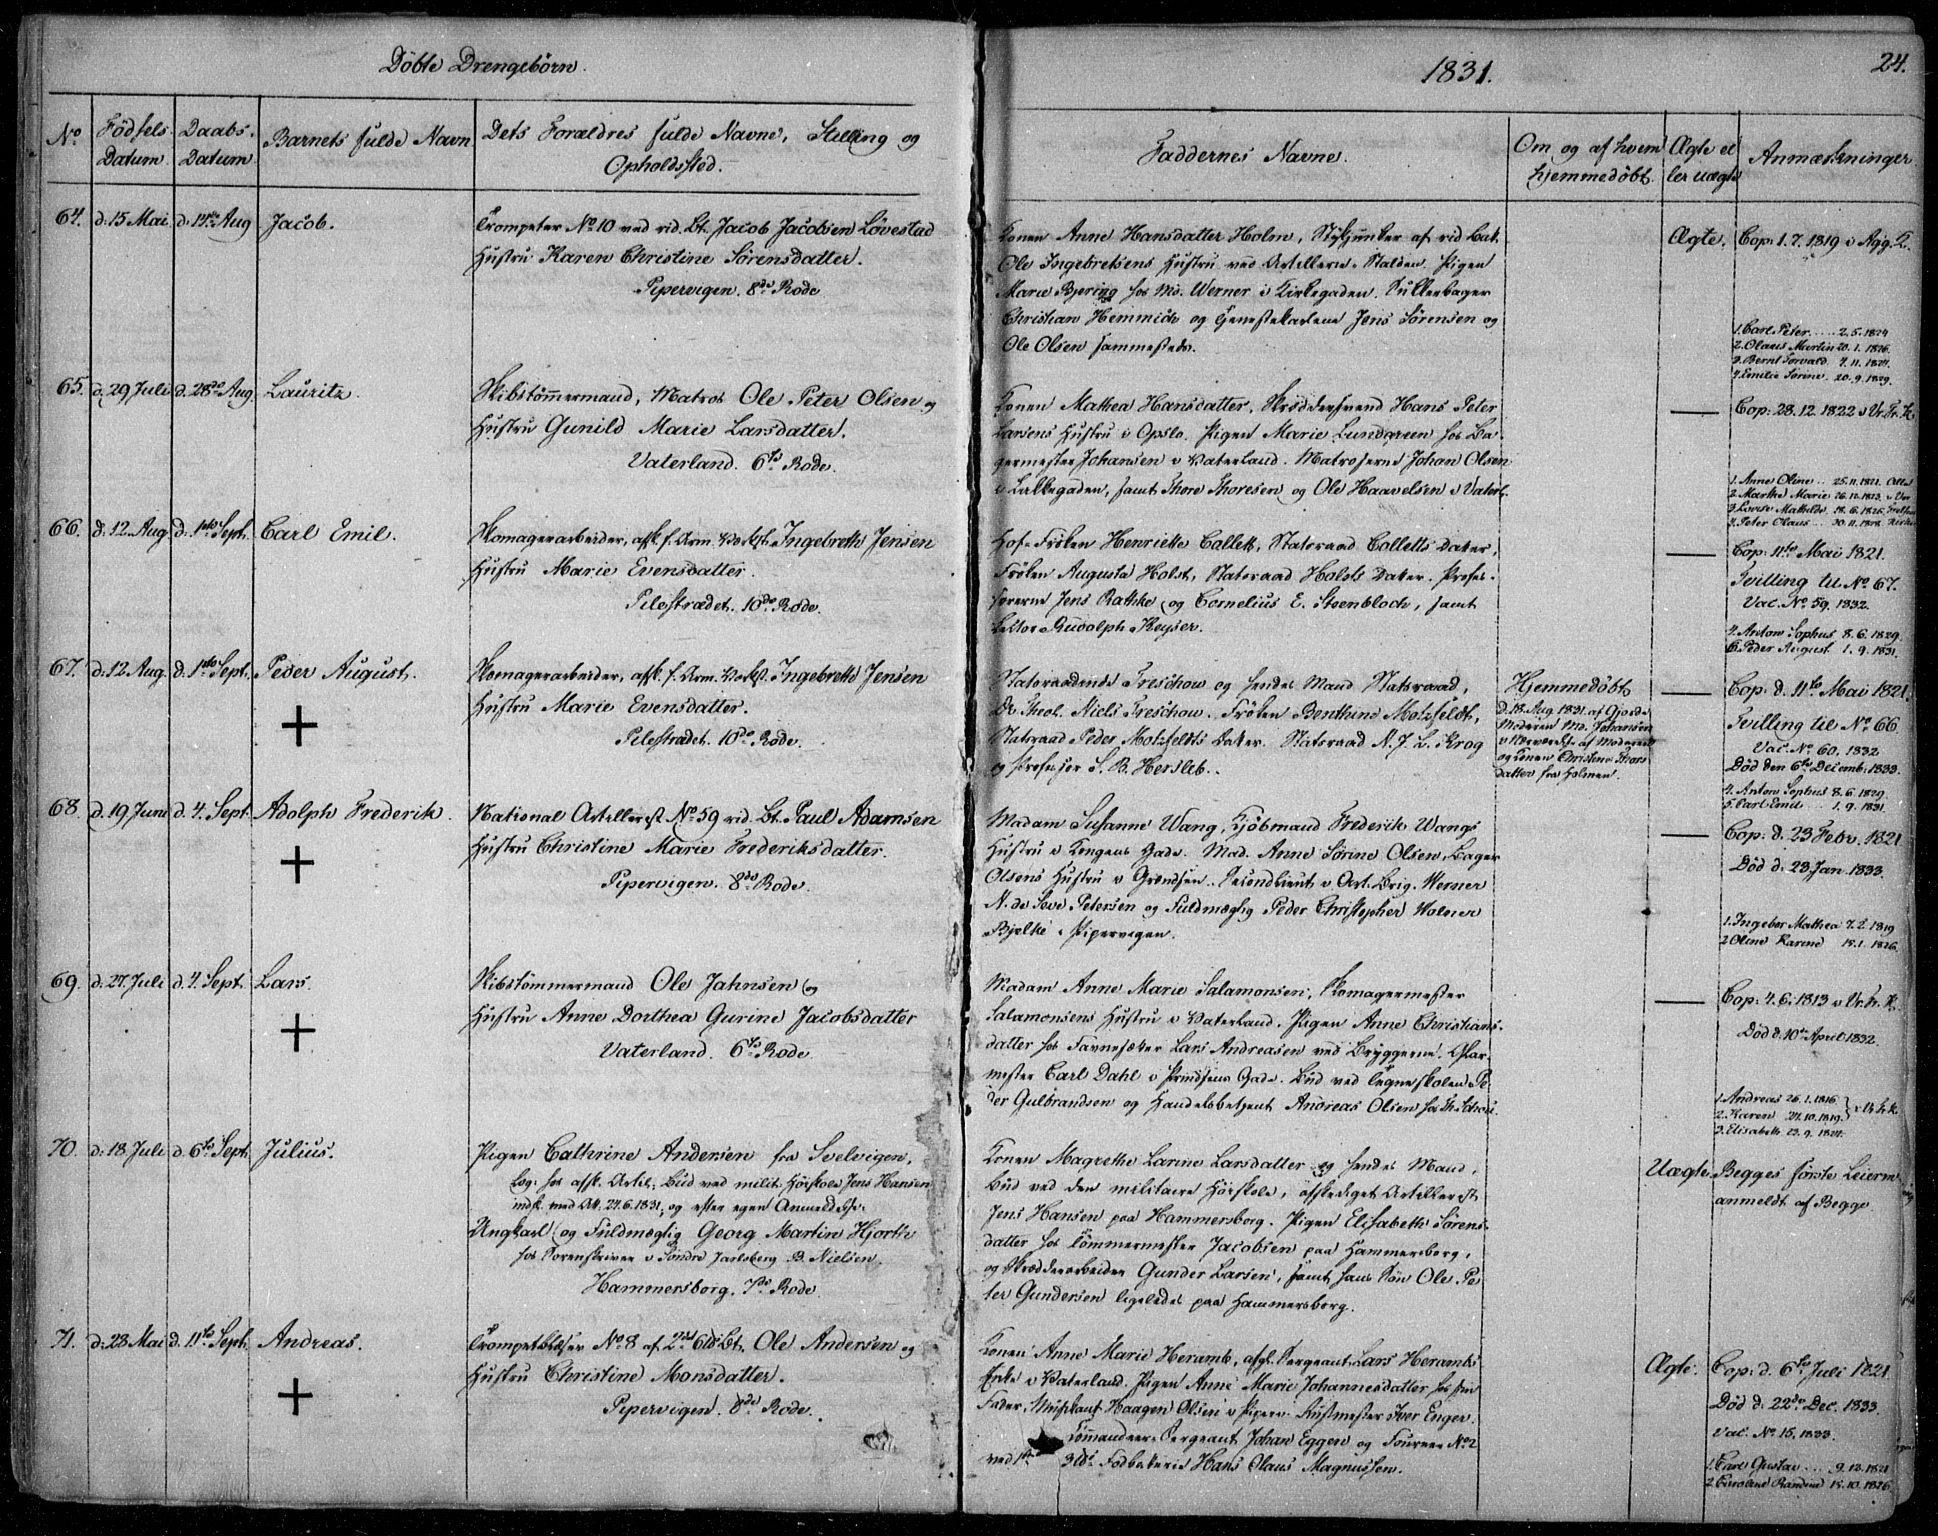 Döbte Drengebörn.
1831.
24.
No
Födsels Datum
Daabs Datum
Barnets fulde Navn
Dets Forældres fulde Navne, Stilling og
Opholdssted.
Faddernes Navne.
Om og af hvem
hjemmedöbt.
Ægte el
ler uægte
Anmærkninger
64. d. 15 Mai d. 14de Aug Jacob.
Trompeter No 10 ved rid. Bt. Jacob Jacobsen Løvestad
Hustru Karen Christine Sörensdatter.
Pipervigen. 8de Rode
Konen Anne Hansdatter Holm, Stykjunker af rid Bat.
Ole Ingebretsens Hustru ved Artillerie Stalden. Pigen
Marie Bjering hos Md. Werner i Kirkegaden. Sukkerbager
Christian Hemmich og Tjenestekarlene Jens Sörensen og
Ole Olsen sammesteds.
Ægte.
Cop: 1.7.1819 i Agg. K.
1. Carl Peter ..... 2.5.1824
2. Olaus Martin 20.1.1826.
3. Bernt Torvald 4.11.1827.
4. Emilie Sorine. 20.9.1829.
65. d. 29 Juli d. 28de Aug Lauritz.
Skibstömmermand, Matros Ole Peter Olsen og
Hustru Gunild Marie Larsdatter.
Vaterland. 6te Rode.
Konen Mathea Hansdatter, Skræddersvend Hans Peter
Larsens Hustru i Opslo. Pigen Marie Lundgreen hos Ba-
germester Johansen i Vaterland. Matroserne Johan Olsen
i Lakkegaden, samt Thore Thoresen og Ole Haavelsen i Vaterl.
Cop: 28.12.1822 i Vr. Fr. K.
1. Anne Oline .. 25.11.1821.
2. Marthe Marie 26.12.1823. i Vor
3. Lovise Mathilde 18.6.1826. Frelsers
4. Peter Olaus ... 30.11.1828. Kirke
66. d. 12 Aug d. 1ste Sept. Carl Emil.
Skomagerarbeider, afsk. f. Arm. Verkst. Ingebreth Jensen
Hustru Marie Evensdatter.
Pilestrædet. 10de Rode.
Hof-Fröken Henriette Collett, Statsraad Colletts Datter,
Fröken Augusta Holst, Statsraad Holsts Datter. Profes-
sorerne Jens Rathke og Cornelius E. Steenbloch, samt
Lektor Rudolph Keyser.
Cop: 11te Mai 1821.
Tvilling til No. 67.
Vac. No 59. 1832.
4. Anton Sophus 8.6.1829.
6. Peder August. 1.9.1831.
67. d. 12 Aug. d. 1ste Sept. Peder August.
Skomagerarbeider, afsk. f. Arm. Verkst. Ingebreth Jensen
Hustru Marie Evensdatter.
Pilestrædet. 10de Rode.
Statsraadinde Treschow og hendes Mand Statsraad,
Dr. Theol. Niels Treschow. Fröken Benthine Motzfeldt,
Statsraad Peder Motzfeldts Datter. Statsraad N. J. L. Krog
og Professor S. B. Hersleb.
Hjemmedöbt
d. 18 Aug 1831. af Gjorde
Moderen Md. Johansen
i Nærværelse af Moderen
og Konen Christine Thors-
datter fra Holmen.
Cop: d. 11te Mai 1821
Tvilling til No. 66
Vac. No. 60. 1832
Död den 6te Decemb: 1833.
4. Anton Sophus 8.6.1829.
5. Carl Emil .. 1.9.1831.
68. d. 19 Juni d. 4. Sept. Adolph Frederik.
National Artillerist No 59 rid. Bt. Paul Adamsen
Hustru Christine Marie Frederiksdatter.
Pipervigen. 8de Rode.
Madam Susanne Wang, Kjöbmand Frederik Wangs
Hustru i Kongens Gade. Mad. Anne Sörine Olsen, Bager
Olsens Hustru i Grændsen. Secondlieut: i Art. Brig. Werner
N. de Seve Petersen og Fuldmægtig Peder Christopher Wolner
Bjelke i Pipervigen.
Cop: d. 23 Febr. 1821
Död d. 23 Jan. 1833.
1. Ingebor Mathea 7.2.1819
2. Oline Karine 15.1.1826.
69. d. 27. Juli d. 4. Sept. Lars.
Skibstömmermand Ole Jahnsen og
Hustru Anne Dorthea Gurine Jacobsdatter
Vaterland. 6te Rode.
Madam Anne Marie Salamonsen, Skomagermester
Salamonsens Hustru i Vaterland. Pigen Anne Christians-
datter hos Favnesætter Lars Andreasen ved Bryggerne. Glar-
mester Carl Dahl i Prindsens Gade. Bud ved Tegneskolen Pe-
der Gulbrandsen og Handelsbetjent Andreas Olsen
Cop: 4.6.1813 i Vr. Fr. K.
Död d. 10de April 1832.
1. Andreas 26.1.1816.
2. Karen 24.10.1819.
3. Elisabeth 23.9.1827.
70. d. 18 Juli d. 6te Sept. Julius.
Pigen Cathrine Andersen fra Svelvigen,
Log: hos afsk. Artil., Bud ved milit. Höiskole Jens Hansen
indk. med Att. 24.6.1831, og efter egen Anmeldelse.
Ungkarl og Fuldmægtig Georg Martin Hjorth
hos Sorenskriver i Söndre Jarlsberg B. Nielsen.
Hammersborg. 7de Rode.
Konen Magrethe Larine Larsdatter og hendes Mand,
Bud ved den militaire Höiskole, afskediget Artillerist
Jens Hansen paa Hammersborg. Pigen Elisabeth Sörens-
datter hos Tömmermester Jacobsen paa Hammersborg,
og Skrædderarbeider Gunder Larsen, samt hans Sön Ole Pe-
ter Gundersen ligeledes paa Hammersborg.
Uægte.
Begges förste Leierm
anmeldt af Begge.
71. d. 28 Mai d. 11te Sept. Andreas.
Trompetblæser No 8 af 2det 6℔ds Bt. Ole Andersen og
Hustru Christine Monsdatter.
Pipervigen. 8de Rode.
Konen Anne Marie Heramb, afg. Sergeant Lars Herambs
Enke i Vaterland. Pigen Anne Marie Johannesdatter hos sin
Fader, Musikant Haagen Olsen i Piperv. Kustmester Iver Enger.
Commandeer-Sergeant Johan Eggen og Fourer No 2
ved 1ste 3℔ds Fodbatterie Hans Olaus Magnussen.
Ægte.
Cop: d. 6te Juli 1821
Död d. 22de Dec. 1833.
Vac. No. 15. 1833.
1. Carl Gustav .... 9.12.1821
2. Caroline Randine 15.10.1826